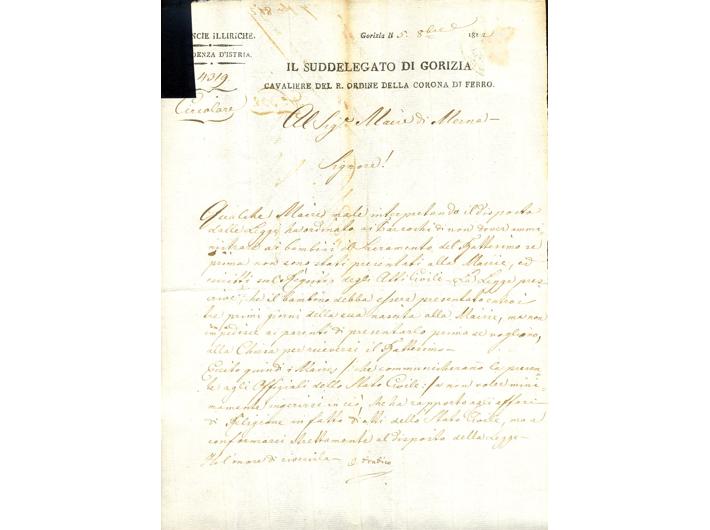 NCIE ILLIRICHE.
DENZA D'ISTRIA.
4319
Circolare
Gorizia li 5. 8bre 1812
IL SUDDELEGATO DI GORIZIA
CAVALIERE DEL R. ORDINE DELLA CORONA DI FERRO.
Al Sigr. Maire di Merna
Signore!
Qualche Maire male interpretando il disposto
dalle Leggi ha ordinato ai Parrochi di non dover ammi
nistrare ai bambini il Sacramento del Battesimo se
prima non sono stati presentati alla Mairie, ed
inscritti sul Registro degli Atti Civili. La Legge pres
crive, che il bambino debba essere presentato entro i
tre primi giorni della sua nascita alla Mairie, ma non
impedisce ai parenti di presentarlo prima se vogliono,
alla Chiesa per ricevervi il Battesimo.
Eccito quindi i Maires, che communicheranno la presen
te agli Offiziali dello Stato Civile, a non voler mini
mamente ingerirsi in ciò, che ha rapporto agli affari
di Religione in fatto di atti dello Stato Civile, ma a
conformarsi strettamente al disposto della Legge.
Ho l'onore di